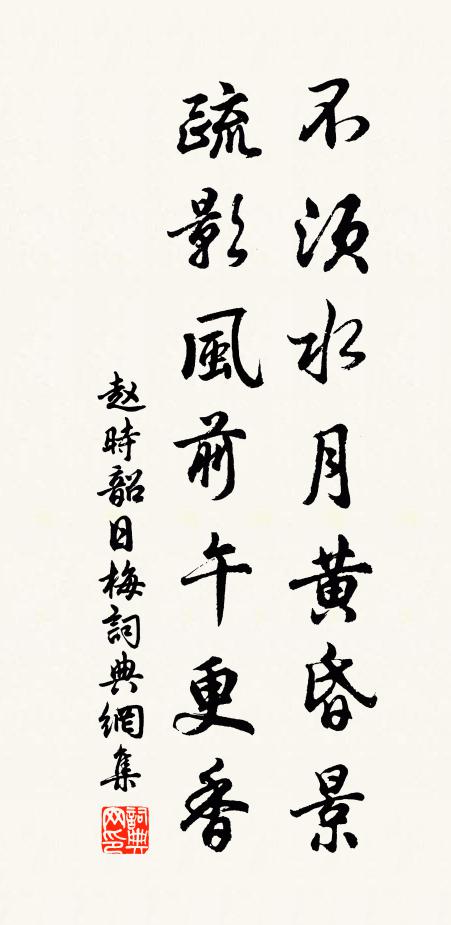 不須水月黄昏景
疏影風前午更香
赵時韶日梅詞典網集
詞典网印